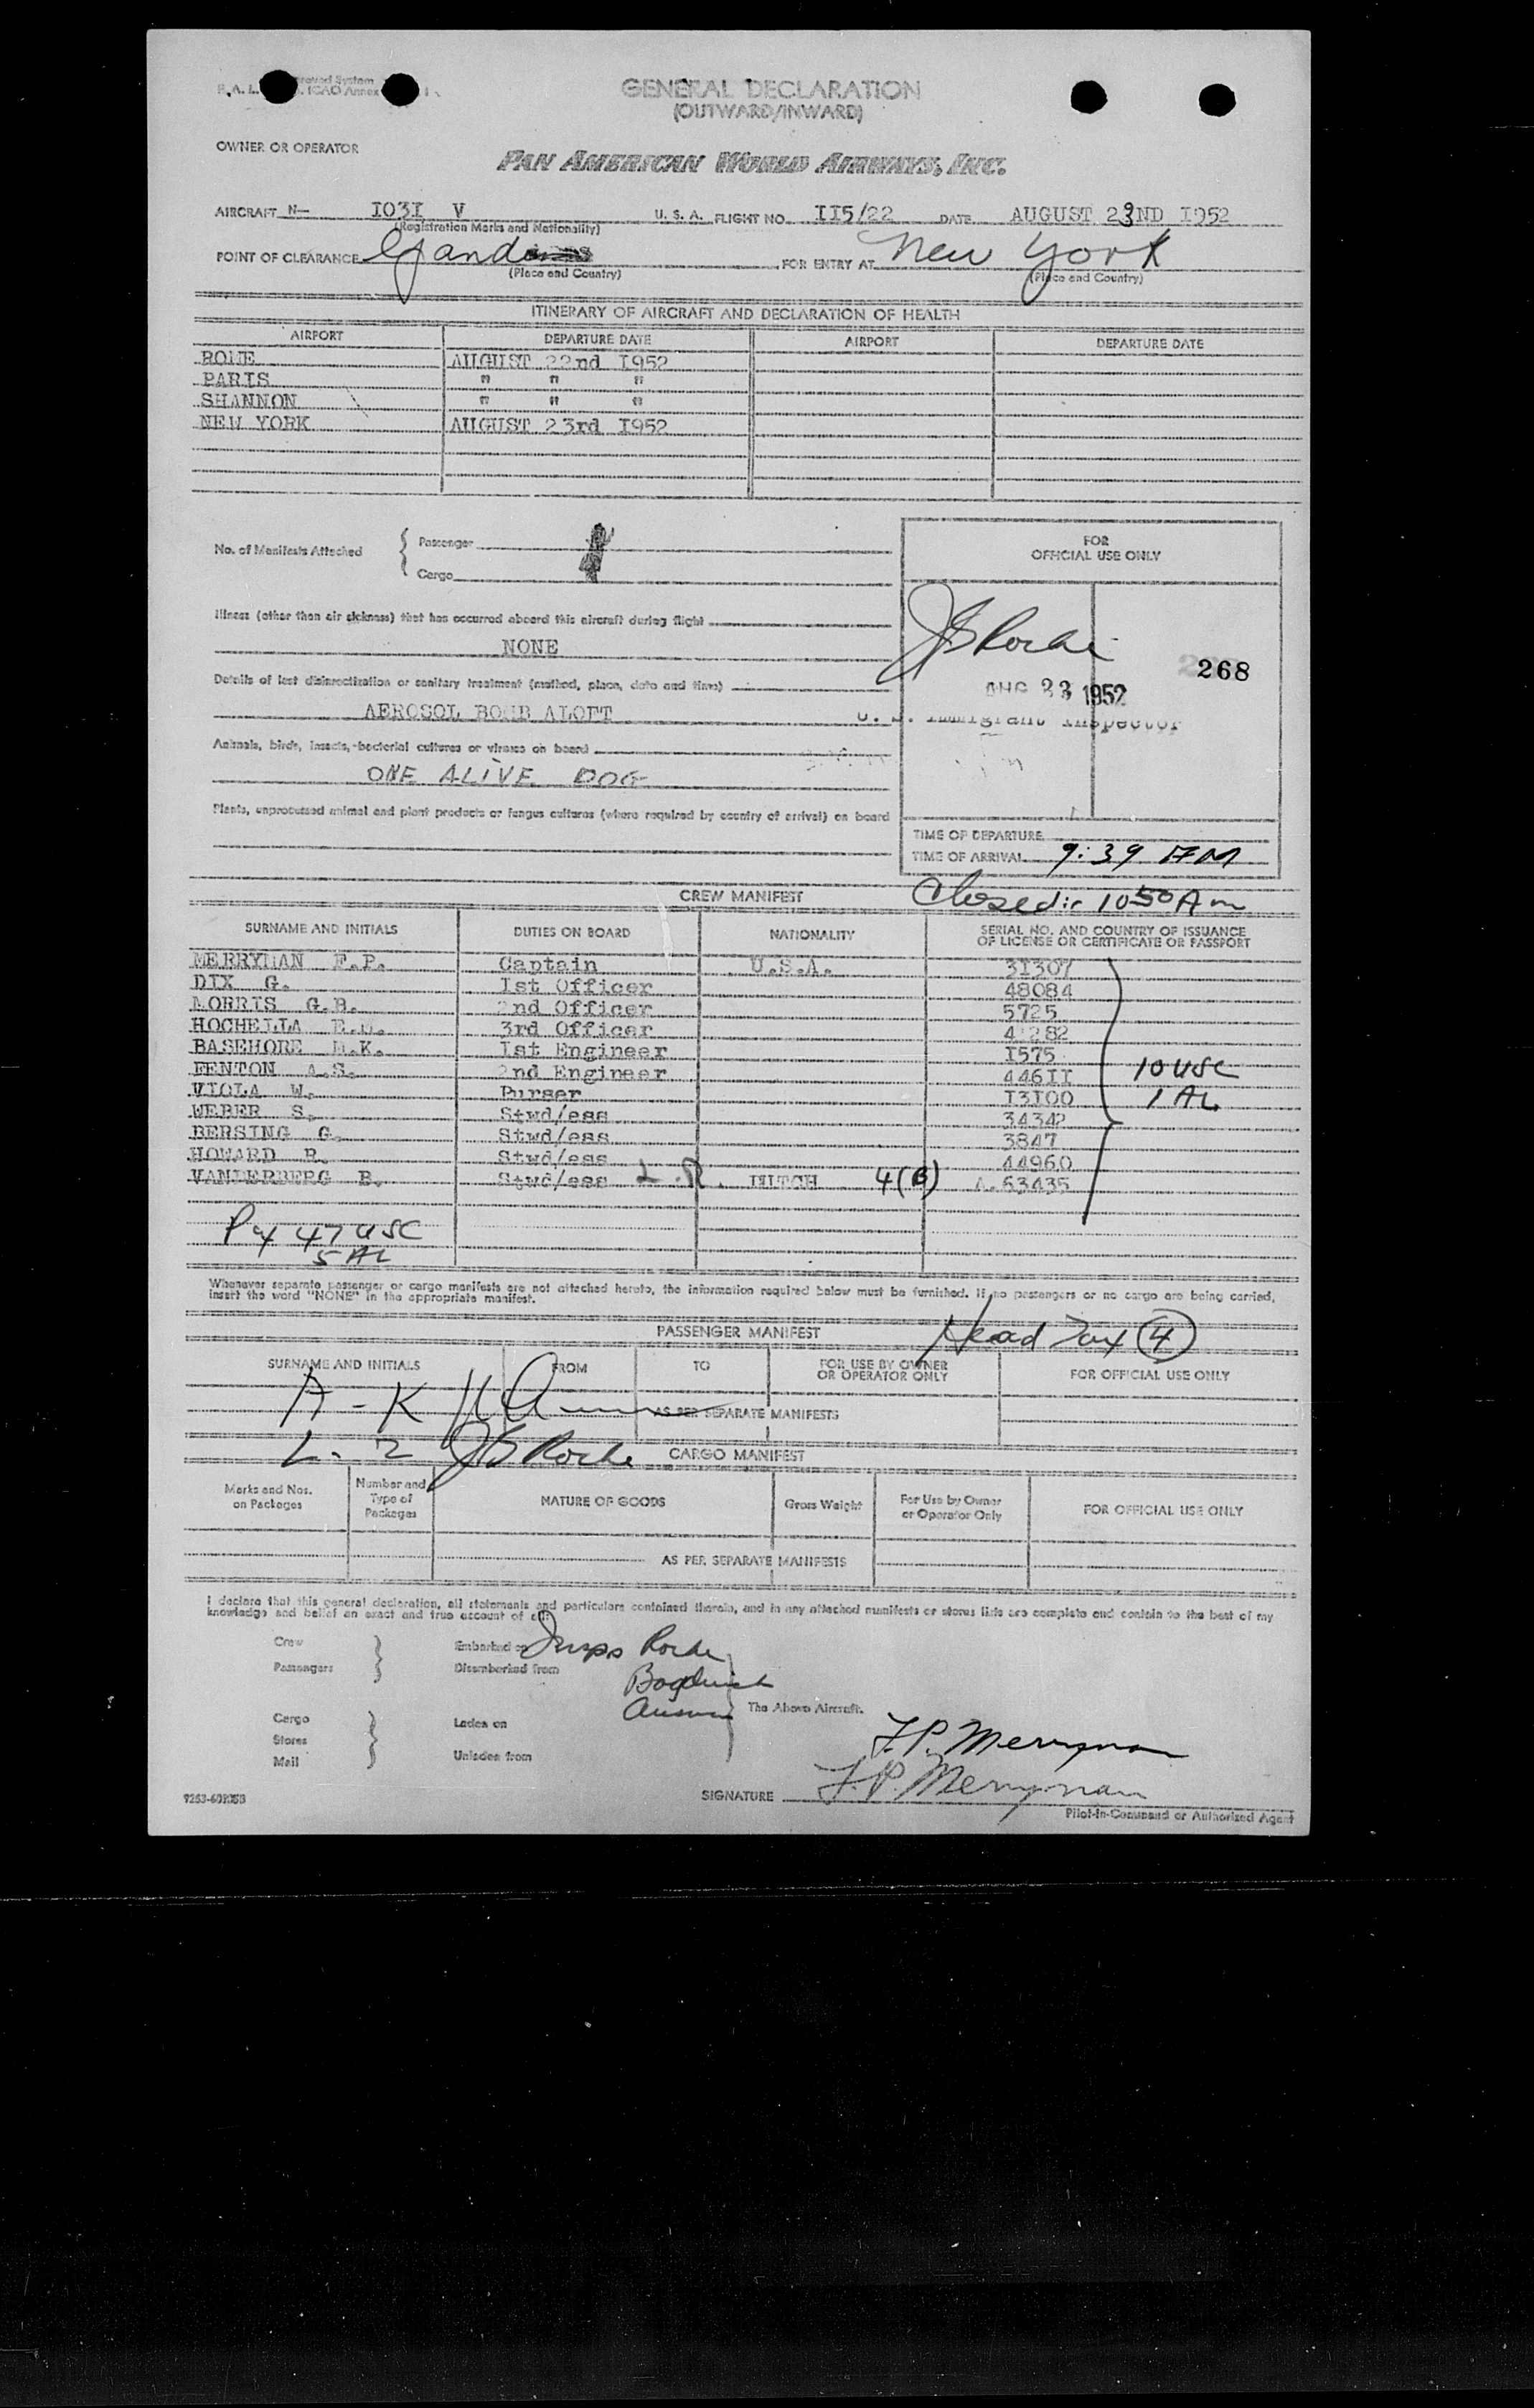 GENERAL DECLARATION
(OUTWARD/INWARD)
OWNER OR OPERATOR
PAN AMERICAN WORLD AIRWAYS, INC.
AIRCRAFT N- I03I V U. S. A. FLIGHT NO. II5/22 DATE AUGUST 23ND I952
(Registration Marks and Nationality)
POINT OF CLEARANCE FOR ENTRY AT New York
(Place and Country) (Place and Country)
ITINERARY OF AIRCRAFT AND DECLARATION OF HEALTH
AIRPORT DEPARTURE DATE AIRPORT DEPARTURE DATE
ROME AUGUST 22nd I952
PARIS " " "
SHANNON " " "
NEW YORK AUGUST 23rd I952
No. of Manifests Attached
Passenger
Cargo
FOR
OFFICIAL USE ONLY
Illness (other than air sickness) that has occurred aboard this aircraft during flight
NONE
268
Details of last disinsectization or sanitary treatment (method, place, date and time)
AUG 23 1952
AEROSOL BOMB ALOFT
U. S. Immigrant Inspector
Animals, birds, insects, bacterial cultures or viruses on board
ONE ALIVE DOG
Plants, unprocessed animal and plant products or fungus cultures (where required by country of arrival) on board
TIME OF DEPARTURE
TIME OF ARRIVAL 9:39 AM
CREW MANIFEST Closed: 1050 Am
SURNAME AND INITIALS DUTIES ON BOARD NATIONALITY SERIAL NO. AND COUNTRY OF ISSUANCE
OF LICENSE OR CERTIFICATE OR PASSPORT
MERRYMAN F.P. Captain U.S.A. 3I307
DIX G. Ist Officer 48084
MORRIS G.B. 2nd Officer 5725
HOCHELLA 3rd Officer
BASEHORE M.K. Ist Engineer I575
FENTON A.S. 2nd Engineer 446II 10 USC
VIOLA W. Purser I3I00 1 AL
WEBER S. Stwd/ess 34342
BERSING G. Stwd/ess 3847
HOWARD R. Stwd/ess 44960
VANDERBERG B. Stwd/ess DUTCH 4(B) A.63435
Px 47 USC
5 AL
Whenever separate passenger or cargo manifests are not attached hereto, the information required below must be furnished. If no passengers or no cargo are being carried,
insert the word "NONE" in the appropriate manifest.
PASSENGER MANIFEST Head Tax 4
SURNAME AND INITIALS FROM TO FOR USE BY OWNER
OR OPERATOR ONLY FOR OFFICIAL USE ONLY
A - K
AS PER SEPARATE MANIFESTS
L - Z JS Roche CARGO MANIFEST
Marks and Nos.
on Packages
Number and
Type of
Packages
NATURE OF GOODS Gross Weight For Use by Owner
or Operator Only FOR OFFICIAL USE ONLY
AS PER SEPARATE MANIFESTS
I declare that this general declaration, all statements and particulars contained therein, and in any attached manifests or stores lists are complete and contain to the best of my
knowledge and belief an exact and true account of all:
Crew Embarked on Insps Roche
Passengers Disembarked from
The Above Aircraft.
Cargo Laden on
Stores
Mail Unladen from
F.P. Merryman
SIGNATURE F.P. Merryman
Pilot-in-Command or Authorized Agent